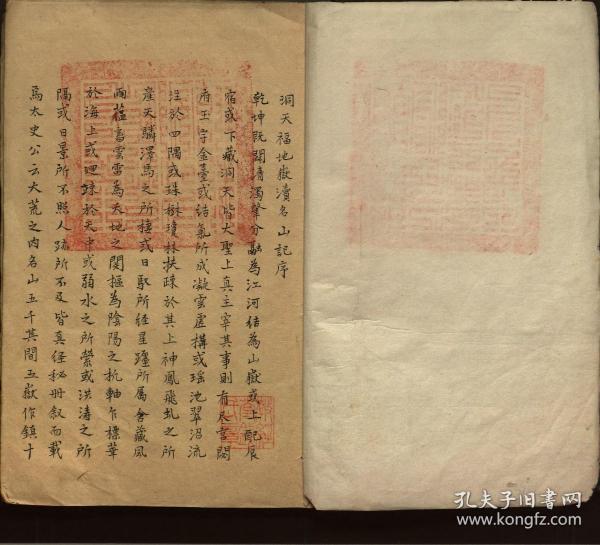 洞天福地嶽瀆名山記序
乾坤既闢清濁肇分融為江河結為山嶽或上配辰
宿或下藏洞天皆大聖上真主宰其事則有灵宮閟
府玉宇金臺或結氣所成凝雲虛構或瑤池翠沼流
注於四隅或珠樹瓊林扶疎於其上神鳳飛虬之所
產天驎澤馬之所棲或日馭所經星躔所属含藏風
雨蘊畜雲雷為天地之関樞為陰陽之机軸乍標華
於海上或迴踈於天中或弱水之所縈或洪濤之所
隔或日景所不照人跡所不及皆真經秘册叙而載
焉太史公云大荒之内名山五千其間五嶽作鎮十
孔夫子旧书网
www.kongfz.com